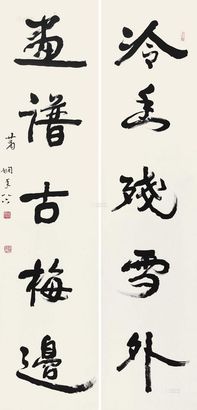 冷香殘雪外
畫譜古梅邊
蕭嫻